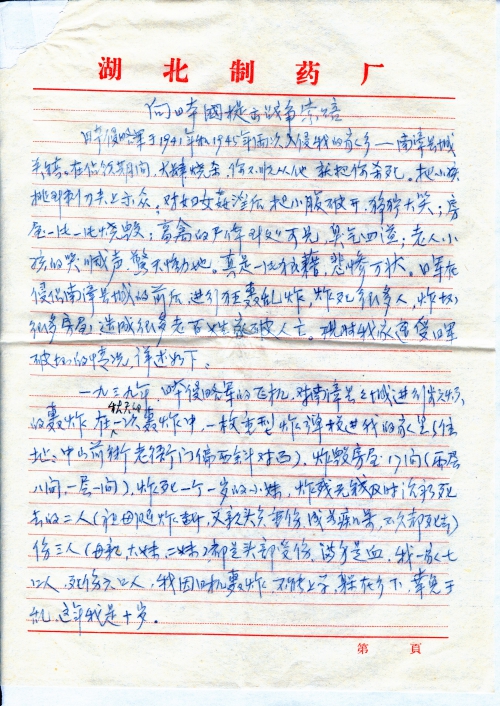 湖北制药厂
向日本國提出战争索赔
日本侵略军于1941年和1945年两次入侵我的家乡——南漳县城
关镇。在占领期间，大肆烧杀，你不顺从他就把你杀死。把小孩
挑到刺刀上示众，对妇女奸淫后把小腹破开，狰狞大笑；房
屋一片一片烧毁；畜禽的尸体到处可见，臭气四溢；老人小
孩的哭喊声惊天恸地。真是一片狼藉，悲惨万状。日军在
侵占南漳县城的前后进行狂轰乱炸，炸死了很多人，炸坏
很多房屋，造成很多老百姓家破人亡。现时我家遭受日军
破坏的情况，详述如下、
一九三九年，日本侵略军的飞机，对南漳县城进行
的轰炸，在秋天的一次轰炸中，一枚重型炸弹投进我的家里(住
址、中山前街老衙门偏西斜对面)，炸毁房屋17间(两层
八间，一层一间)，炸死一个一岁的小妹，炸残无钱及时治疗死
去的二人(祖母腿炸断，父亲头部重伤，成为 不久都死去)
伤三人(母亲、大妹、二妹)都是头部受伤，满身是血，我一家七
口人，死伤六口人，我因日机轰炸，不能上学，躲在乡下，幸免于
乱，这年我是十岁。
第 頁